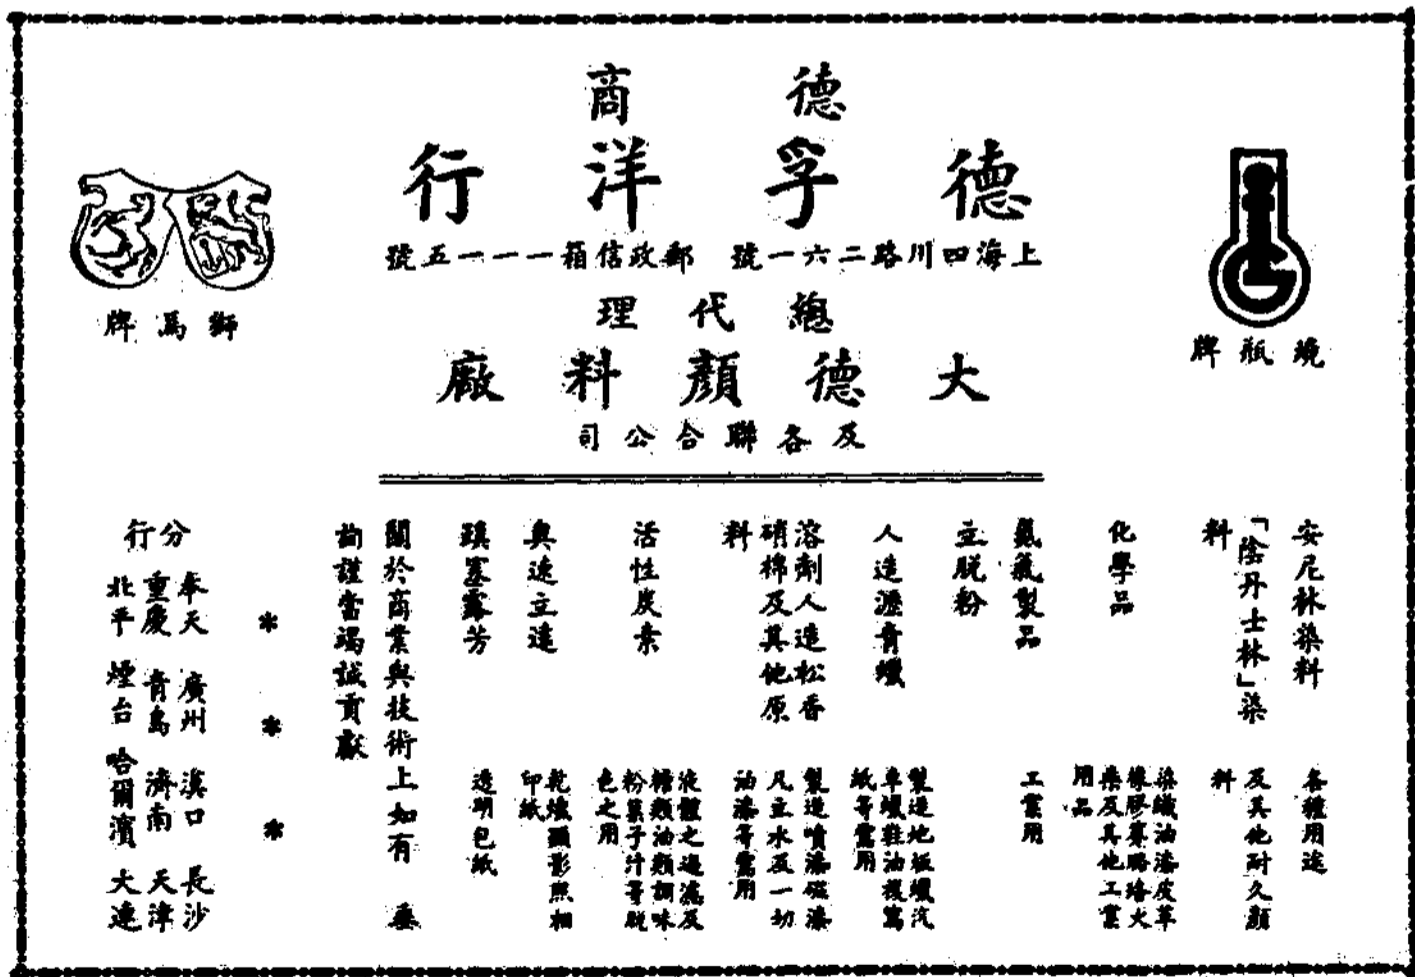 德商
德孚洋行
上海四川路二六一號　郵政信箱一一一五號
總代理
大德顏料廠
及各聯合公司
瓶牌
獅馬牌
安尼林染料
各種用途
「陰丹士林」染
料
及其他耐久顏
料
化學品
染織油漆皮革
橡膠賽璐珞火
柴及其他工業
用品
氮氣製品
工業用
立脫粉
人造瀝青蠟
製造地板蠟汽
車蠟鞋油複寫
紙等需用
溶劑人造松香
硝棉及其他原
料
製造噴漆磁漆
凡立水及一切
油漆等需用
活性炭素
液體之過濾及
糖類油類調味
粉菓子汁等脫
色之用
奧速立達
乾燥顯影照相
印紙
璣塞露芳
透明包紙
關於商業與技術上如有　垂
詢謹當竭誠貢獻
＊　＊　＊
分行
奉天　廣州　漢口　長沙
重慶　青島　濟南　天津
北平　煙台　哈爾濱　大連